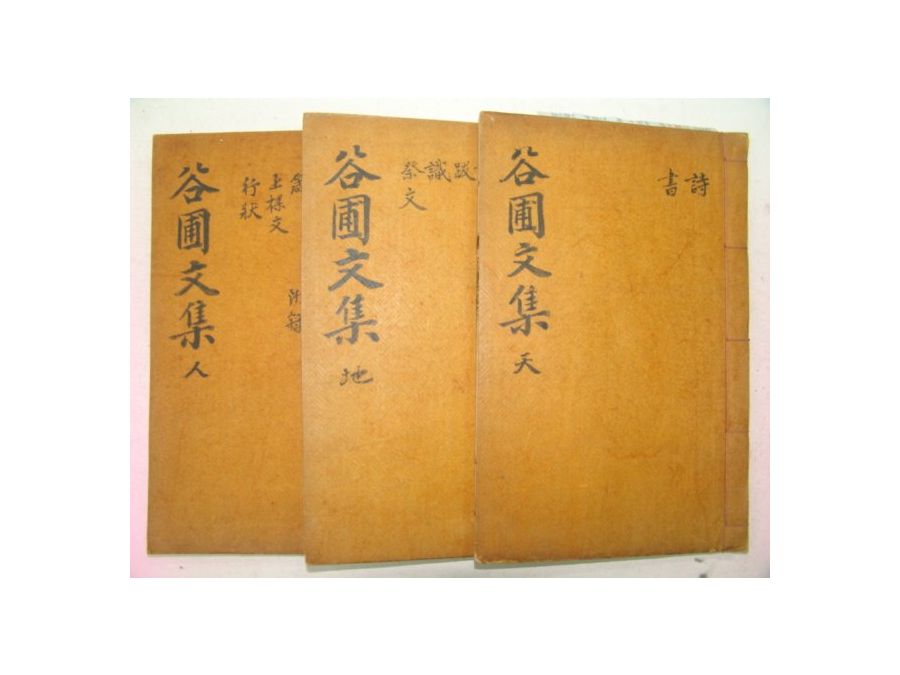 詩
書
谷圃文集 天
跋
識
祭文
谷圃文集 地
上樑文
行狀
附
谷圃文集 人